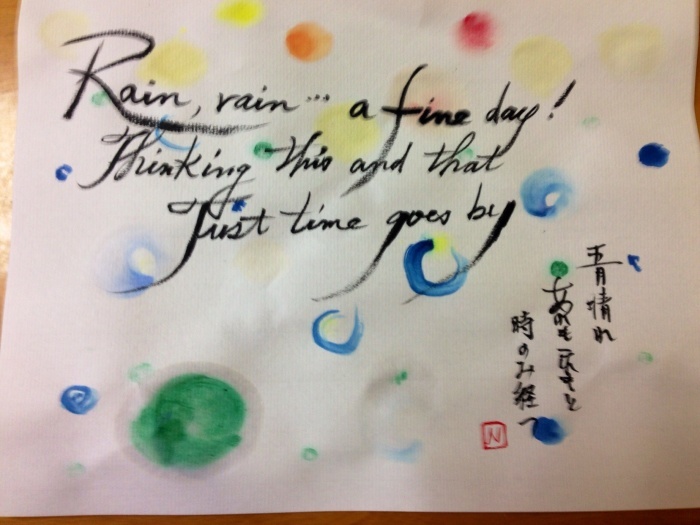 Rain, rain... a fine day!
Thinking this and that
Just time goes by
五月晴れ
あれもこれもと
時のみ経つ
N